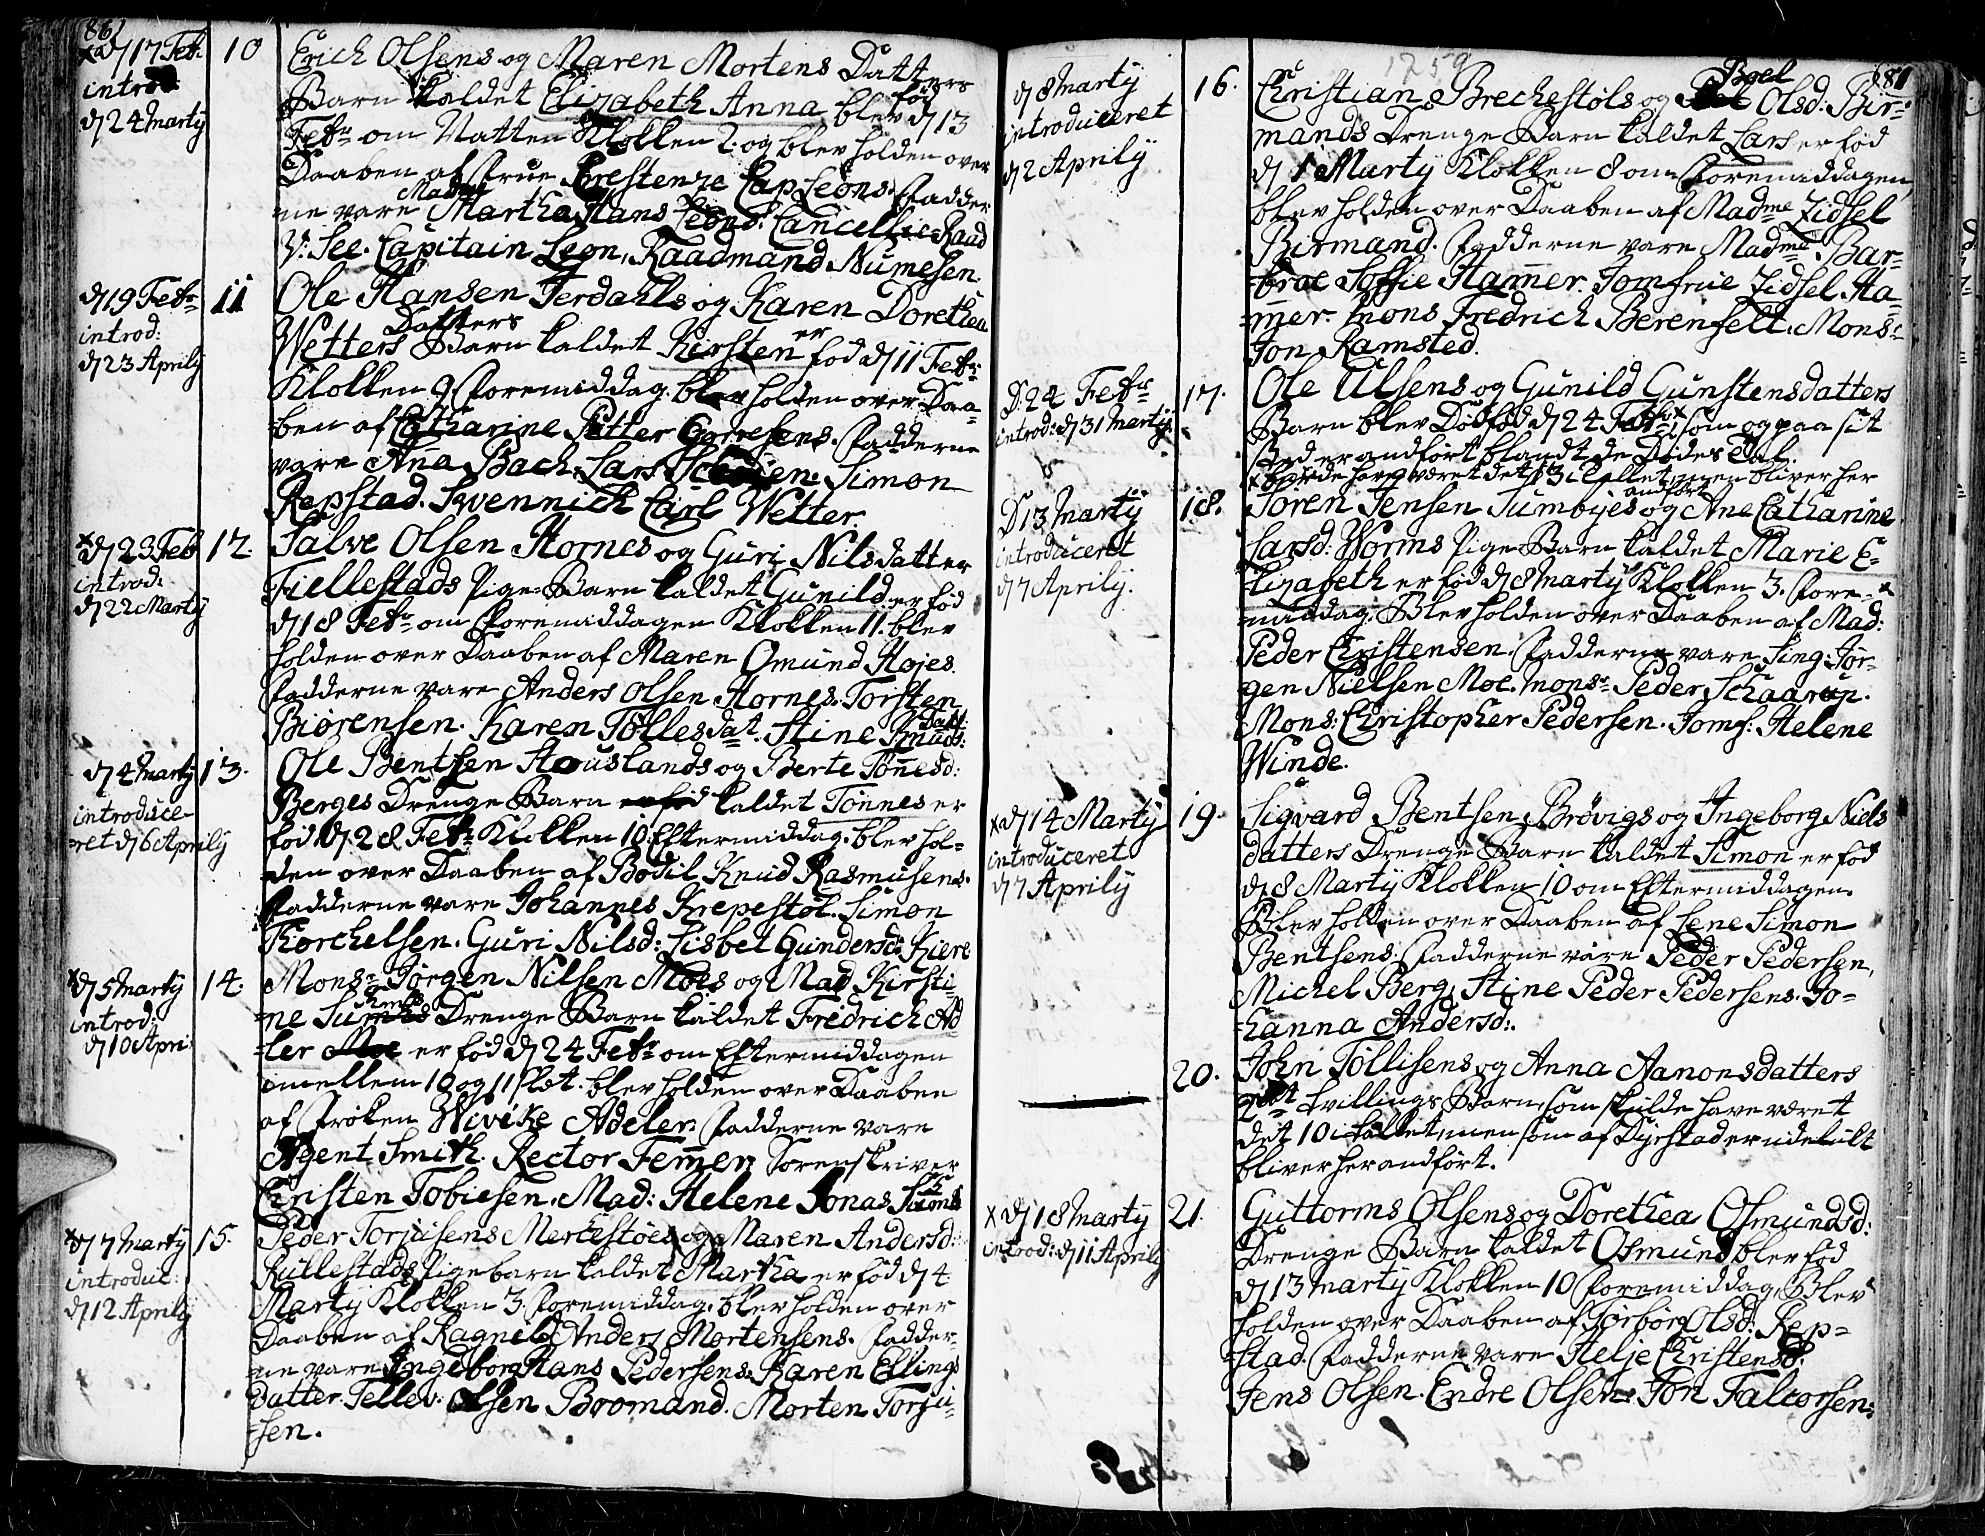 86
x d 17 Febr:
introd:
d 24 Marty
10
Erich Olsens og Maren Mortens Datters
Barn kaldet Elizabeth Anna blev fød d 13
Febr om Natten Klokken 2. og blev holden over
Daaben af Frue Krestenze Cap: Leons. Fadder-
ne vare Madme Martha Hans Leons. Cancellie-Raad
V: See. Capitain Leon, Raadmand Numesen.
d 19 Febr
introd:
d 23 Aprily
11
Ole Hansen Ferdahls og Karen Dorethea
Wetters Datters Barn kaldet Kirsten er fød d 11 Febr:
Klokken 9 Foremiddag. blev holden over Daa-
ben af Catharine Petter Gorresens. Fadderne
vare Anna Bach. Lars. Simon
Repstad. Svennich Carl Wetter.
x d 23 Feb
introd:
d 22 Marty
12.
Salve Olsen Hornes og Guri Nilsdatter
Fiellestads Pige-Barn kaldet Gunild er fød
d 18 Febr om Foremiddagen Klokken 11. blev
holden over Daaben af Maren Omund Højes.
Fadderne vare Anders Olsen Hornes. Torsten
Biörensen. Karen Tollesdat. Stine Knuds: Datt:
d 4 Marty
introduce-
ret d 6 Aprily
13.
Ole Bentsen Houslands og Berte Tönnesd:
Berges Drenge Barn er fød kaldet Tönnes er
fød d 28 Febr Klokken 10 Eftermiddag. blev hol-
den over Daaben af Bodil Knud Rasmusens.
Fadderne vare Johannes Krepestøl. Simon
Torchelsen. Guri Nilsd: Lisbet Gundersd: Kiere
x d 5 Marty
introd:
d 10 Apri:
14.
Monsr Jörgen Nilsen Moes og Mad. Kirsti-
ne Drenge Barn kaldet Fredrich Ad-
ler Moe er fød d 24 Febr om Eftermiddagen
imellem 10 og 11 Slet. blev holden over Daaben
af Frøken Wivike Adeler. Fadderne vare
Agent Smith. Rector Femmer Sorenskriver
Christen Tobiesen. Mad: Helene Jonas
x d 7 Marty
introduc:
d 12 Aprily
15.
Peder Torjusens Mercestöes og Maren Andersd:
Rullestads Pigebarn kaldet Martha er fød d 4
Marty Klokken 3. Foremiddag. blev holden over
Daaben af Ragnild Anders Mortensens. Fadder-
ne vare Ingeborg Hans Pedersens. Karen Ellings
datter. Tellev: Olsen Boomand. Morten Torju-
sen.
87
1759
d 8 Marty
introduceret
d 2 Aprily
16.
Christian Brechestöls og Boel Olsd: Bir-
mands Drenge Barn kaldet Lars er fød
d 1 Marty Klokken 8 om Foremiddagen
blev holden over Daaben af Madme Zidsel
Birmand. Fadderne vare Madme. Bar-
broe Soffie Hammer. Jomfrue Zidsel Ha-
mmer. Mons Fredrich Berenfelt. Mons:
Jon Ramsted.
D. 24 Febr
introd: d 31 Marty.
17.
Ole Ulsens og Gunild Gunstensdatters
Barn blev Dödfød d 24 Febr x, som og paa sit
Sted er andført blandt de Dödes Tal.
x burde have været det 13 i tallet, men bliver her
andført
D 13 Marty
introduceret
d 7 Aprily.
18.
Sören Jensen Sumbyes og Ane Catharine
Larsd: Worms Pige Barn kaldet Marie E-
lizabeth er fød d 8 Marty Klokken 3. Fore-
middag. Blev holden over Daaben af Mad:
Peder Christensen. Fadderne vare Sing: Jör-
gen Nielsen Moe. Monsr Peder Schaarup.
Mons: Christopher Pedersen. Jomf: Helene
Winde.
x d 14 Marty
introduceret
d 7 Aprily
19.
Sigvard Bentsen Brövigs og Ingeborg Niels
datters Drenge Barn kaldet Simon er fød
d 8 Marty Klokken 10 om Eftermiddagen.
Blev holden over Daaben af Lene Simon
Bentsens. Fadderne vare Peder Pedersen,
Michel Berg, Stine Peder Pedersens. Jo-
hanna Andersd:.
20.
John Tollisens og Anna Aanonsdatters
tvillings Barn, som skulde have været
det 10 i tallet, men som af Dyrstad er udelukt
bliver her andført.
x d 18 Marty
introd: d 11 Aprily
21.
Guttorms Olsens og Dorethea Osmundsd:
Drenge Barn kaldet Osmund blev fød
d 13 Marty Klokken 10 Foremiddag. Blev
holden over Daaben af Torbor Olsd: Rep-
stad. Fadderne vare Helje Christensd.
Jens Olsen. Endre Olsen. Jon Falcorsen.